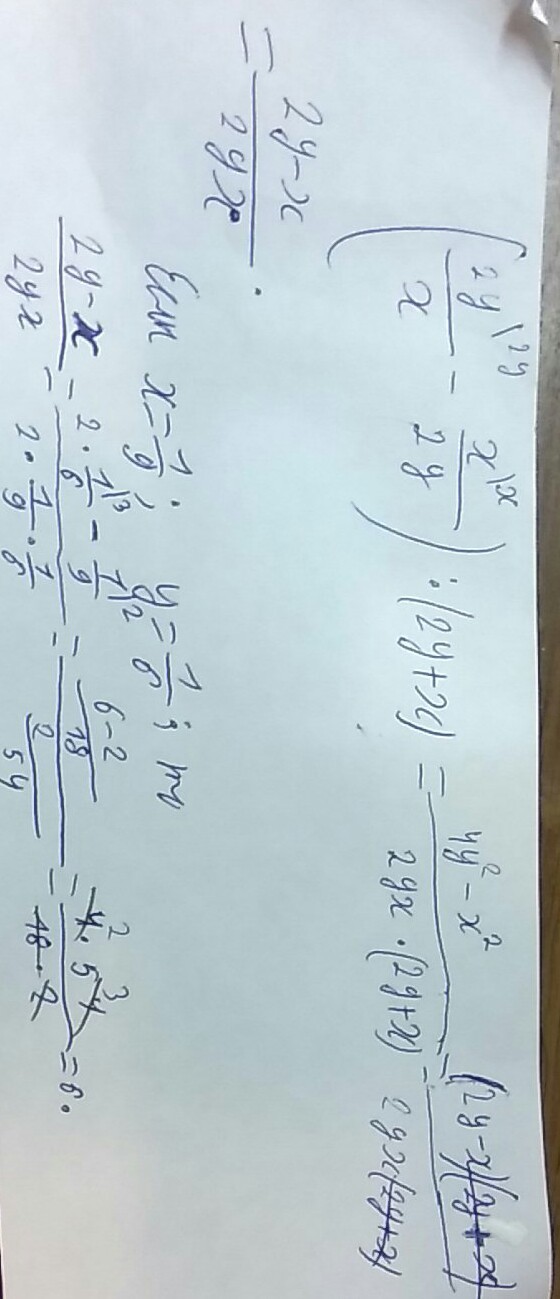 (2y\2y/x − x\x/2y) : (2y+x) = 4y² − x²/2yx · (2y+x) = (2y−x)(2y+x)/2yx(2y+x)
= 2y−x/2yx.
Если x = 1/9; y = 1/6; то
2y−x/2yx = 2 · 1/6\3 − 1/9\2 / 2 · 1/9 · 1/6 = 6−2/18 / 2/54 = 4² · 54³/18 · 2 = 6.